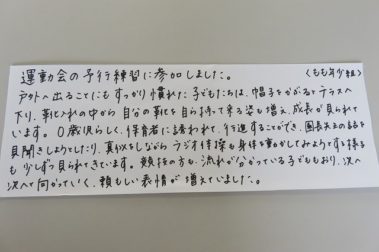 運動会の予行練習に参加しました。 (もも年少組)
戸外へ出ることにもすっかり慣れた子どもたちは、帽子をかぶるとテラスへ
下り、靴入れの中から自分の靴を自ら持って来る姿も増え、成長が見られて
います。0歳児らしく、保育者に誘われて、行進することができ、園長先生の話を
見聞きしようとしたり、真似をしながらラジオ体操も身体を動かしてみようとする様子
も少しずつ見られてきています。競技の方も、流れが分かっている子どももおり、次へ
次へと向かっていく、頼もしい表情が増えていました。